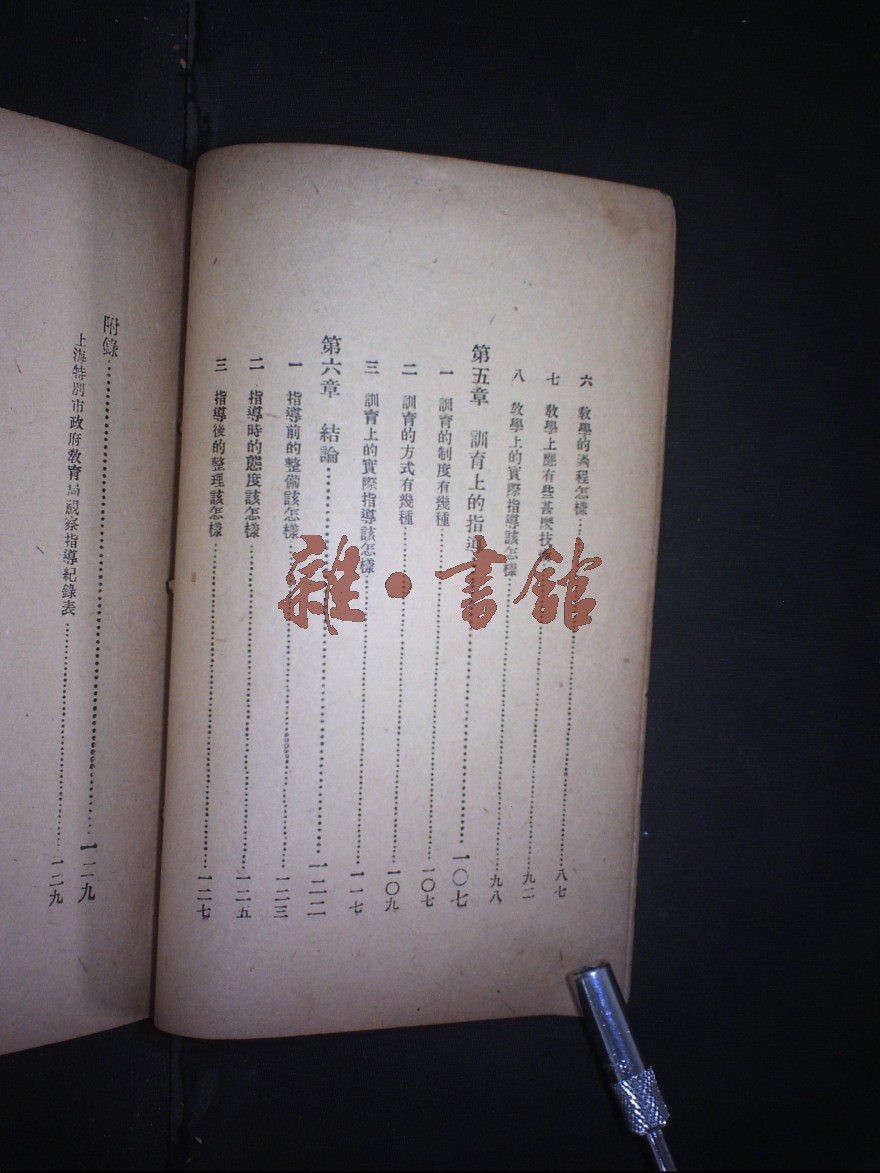 六 教學的過程怎樣……八七
七 教學上應有些甚麼技……九二
八 教學上的實際指導該怎樣……九八
第五章 訓育上的指導……一〇七
一 訓育的制度有幾種……一〇七
二 訓育的方式有幾種……一〇九
三 訓育上的實際指導該怎樣……一一七
第六章 結論……一二二
一 指導前的整備該怎樣……一二三
二 指導時的態度該怎樣……一二五
三 指導後的整理該怎樣……一二七
附錄……一二九
上海特別市政府教育局視察指導紀錄表……一二九
雜·書館